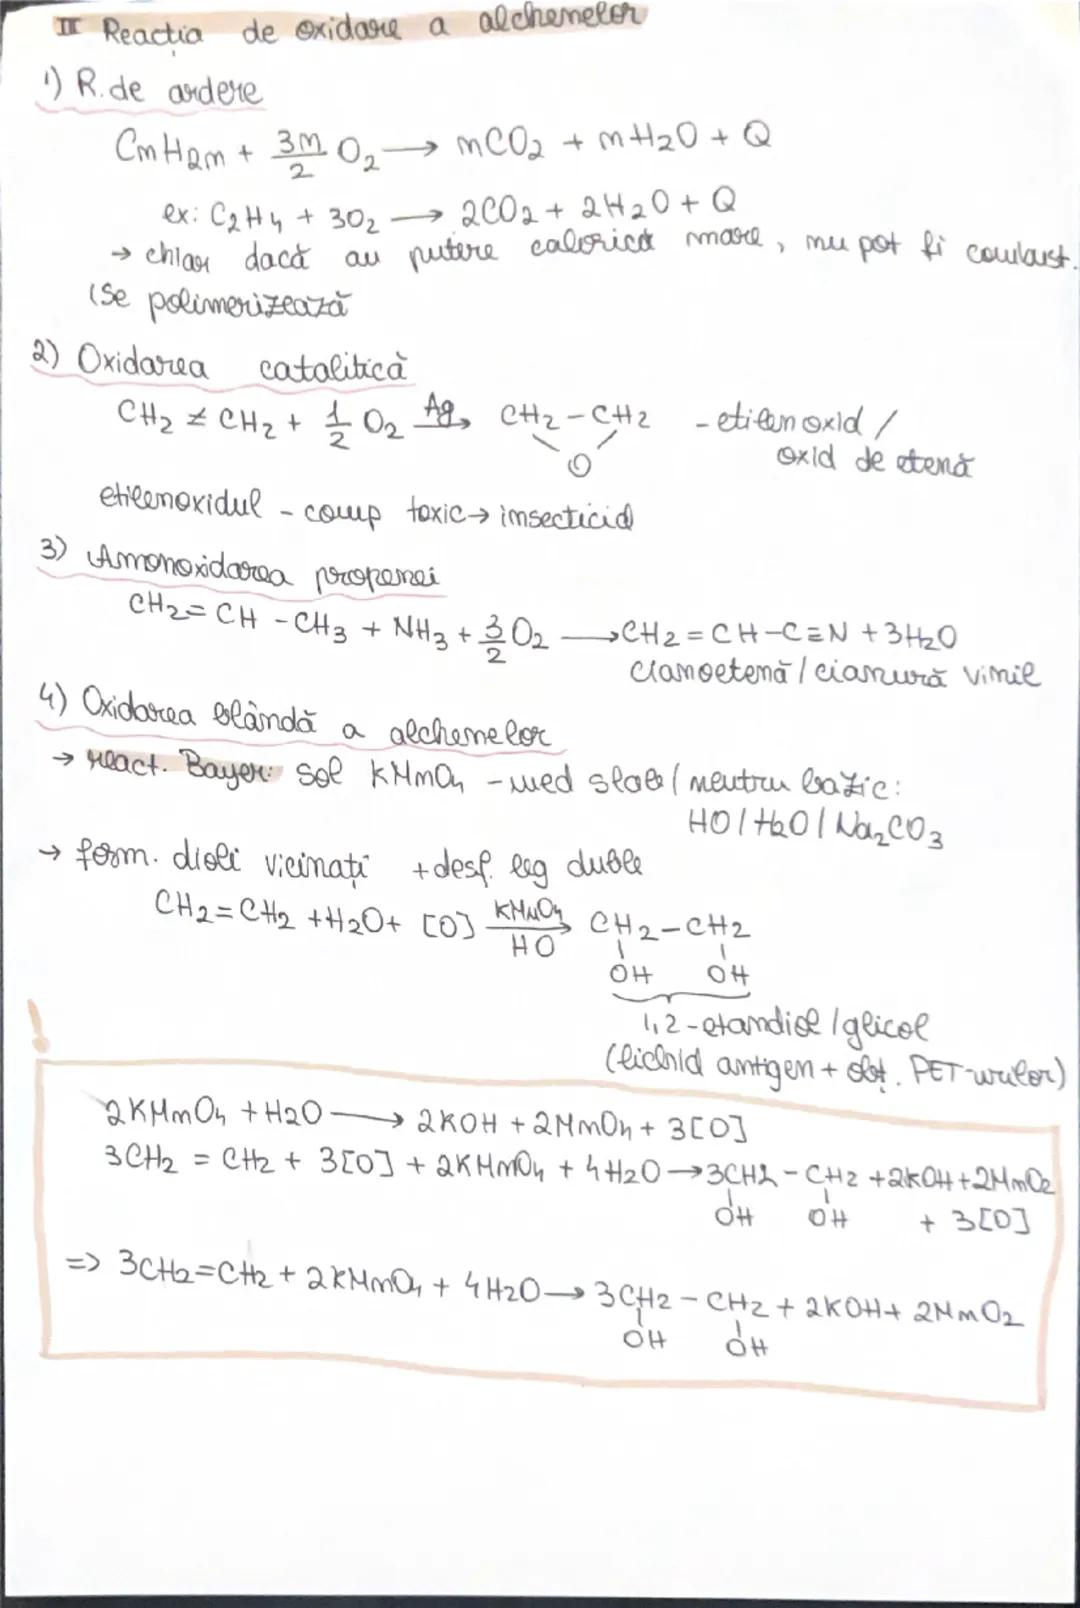 II Reacția de oxidare a alchenelor
1) R. de ardere
CnH2n + 3n/2 O2 → nCO2 + nH2O + Q
ex: C2H4 + 3O2 → 2CO2 + 2H2O + Q
→ chiar dacă au putere calorică mare, nu pot fi combust.
(se polimerizează
2) Oxidarea catalitică
CH2 ≠ CH2 + 1/2 O2 Ag→ CH2 - CH2 - etilenoxid /
O oxid de etenă
etilenoxidul - comp toxic → insecticid
3) Amonoxidarea propenei
CH2 = CH - CH3 + NH3 + 3/2 O2 → CH2 = CH - C ≡ N + 3H2O
cianoetenă / cianură vinil
4) Oxidarea blândă a alchenelor
→ react. Bayer: sol KMnO4 - med slab / neutru bazic:
HO / H2O / Na2CO3
→ form. dioli vicinați + desf. leg duble
CH2 = CH2 + H2O + [O] KMnO4/HO→ CH2 - CH2
OH OH
1,2 - etandiol / glicol
(lichid antigen + obț. PET-urilor)
!
2KMnO4 + H2O → 2KOH + 2MnO4 + 3[O]
3CH2 = CH2 + 3[O] + 2KMnO4 + 4H2O → 3CH2 - CH2 + 2KOH + 2MnO2
OH OH + 3[O]
=> 3CH2 = CH2 + 2KMnO4 + 4H2O → 3CH2 - CH2 + 2KOH + 2MnO2
OH OH